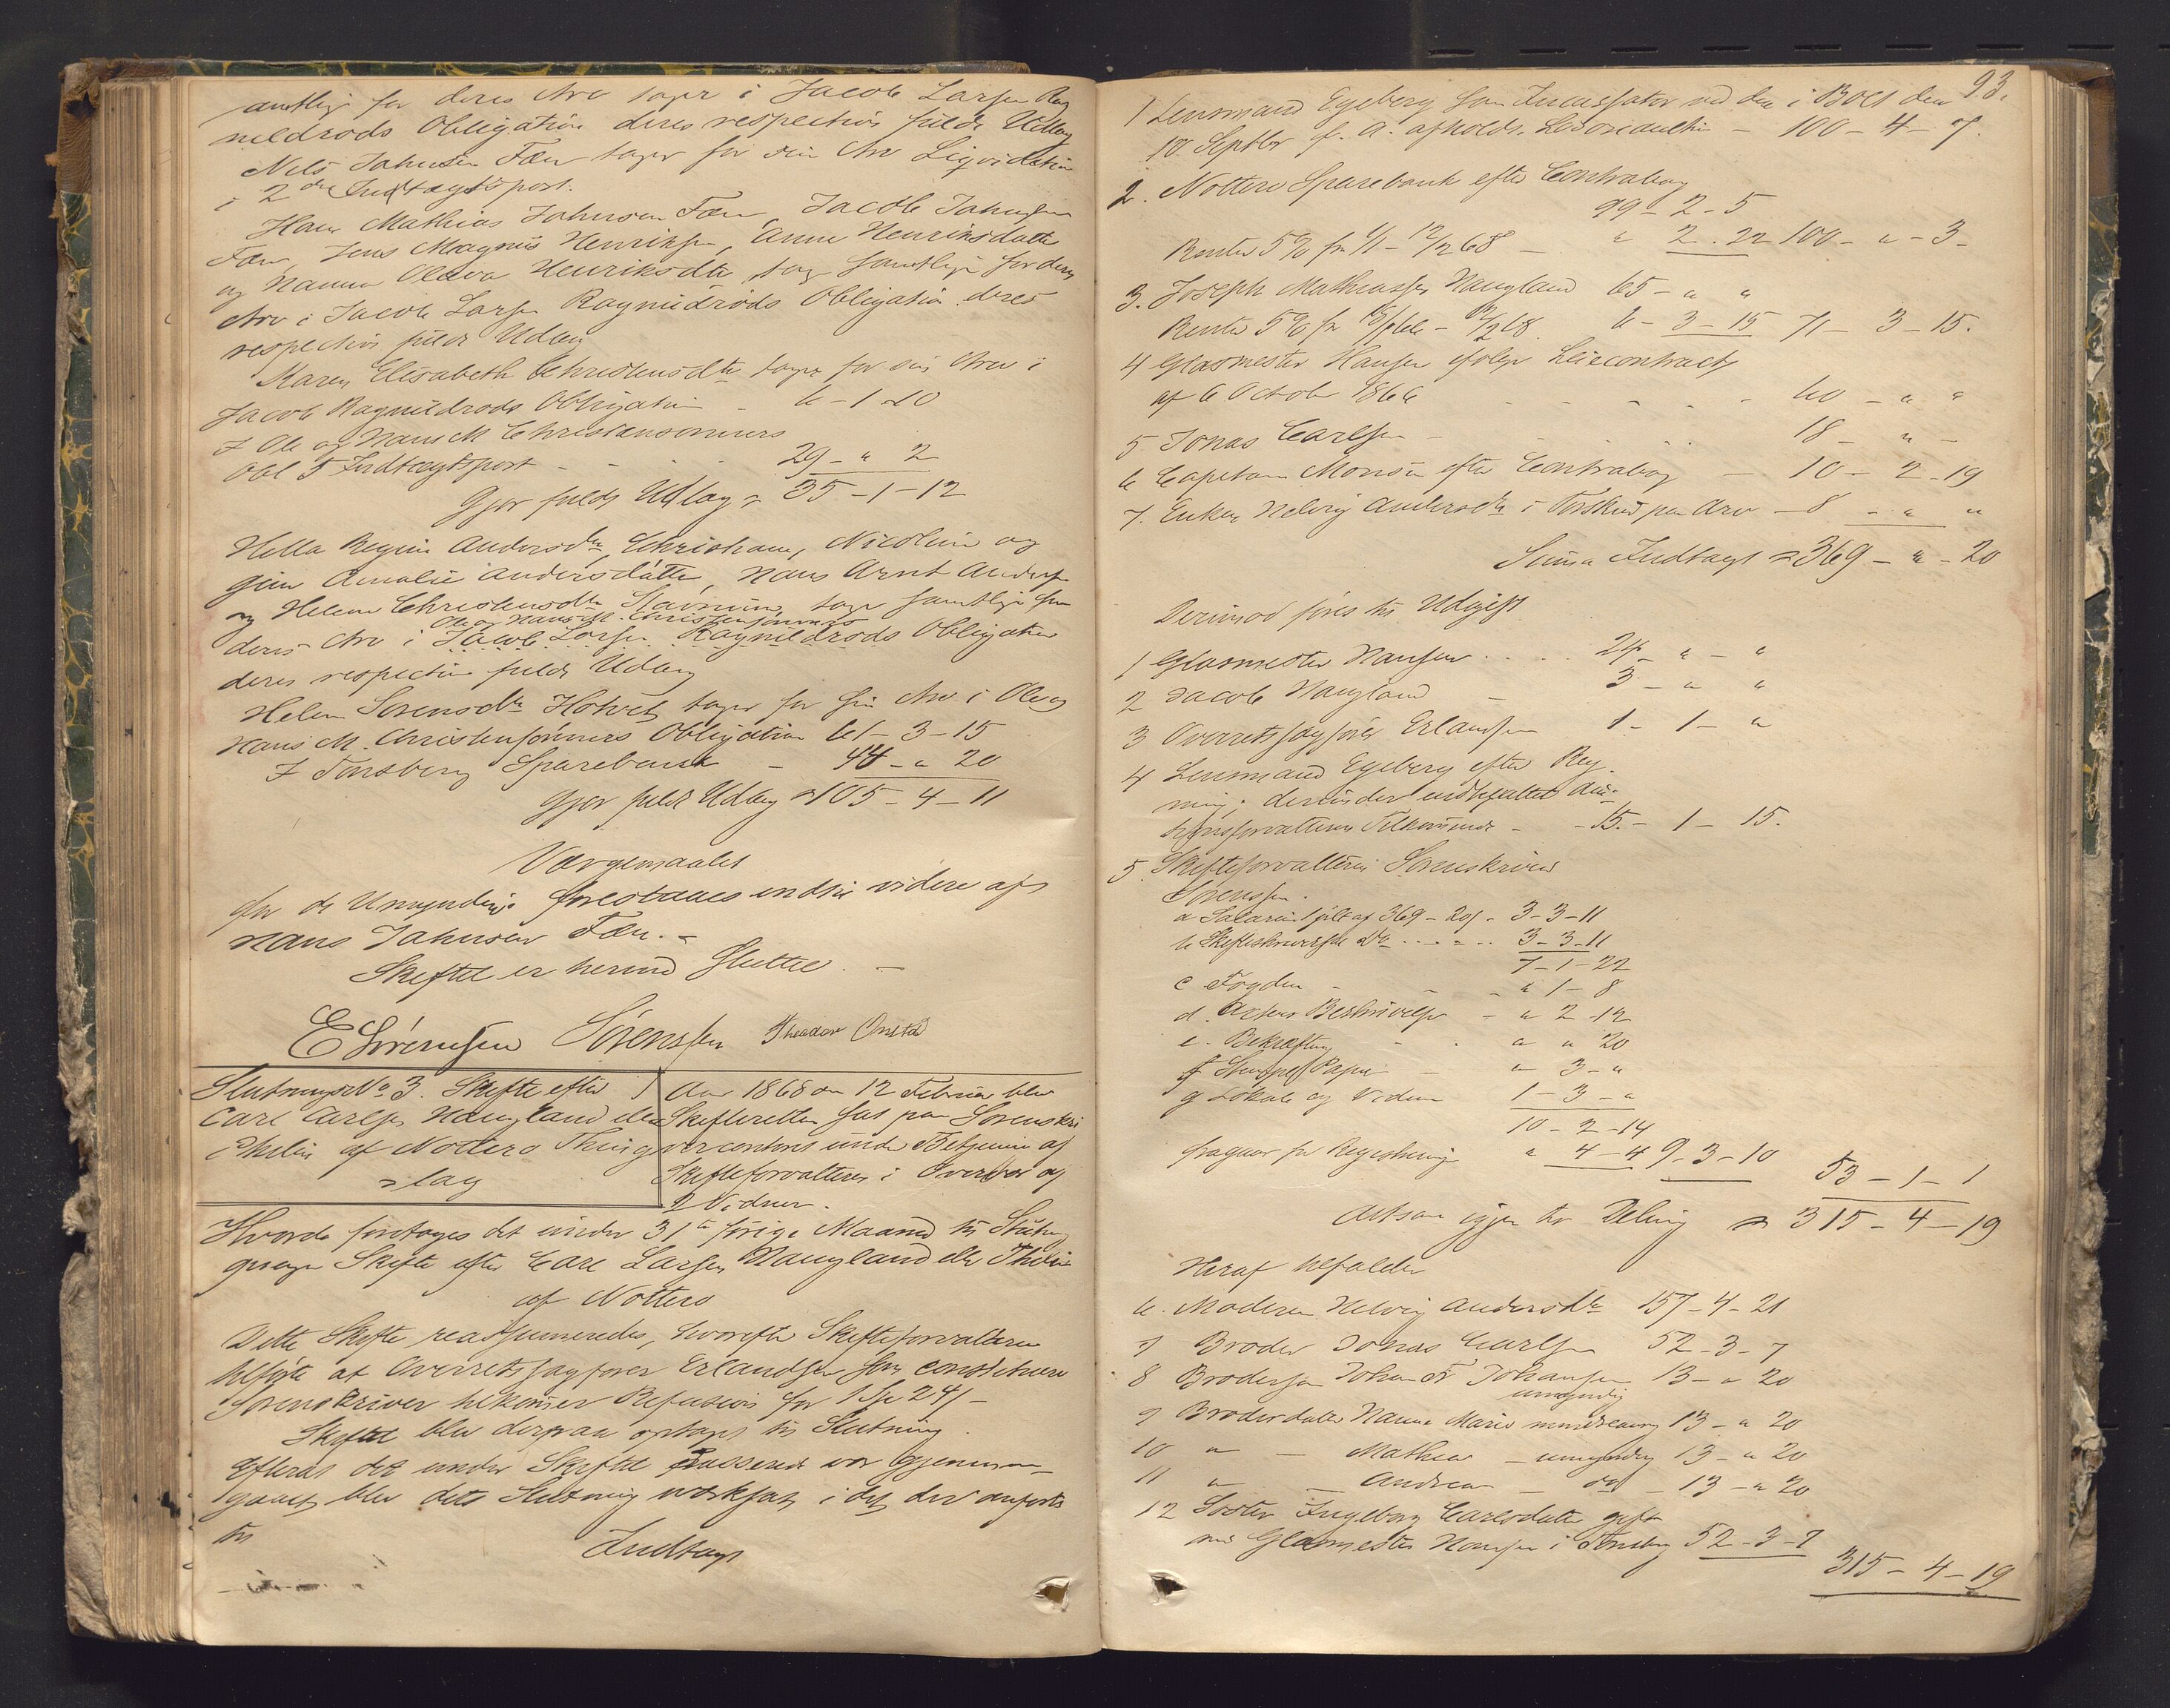 samtlige for deres Arv tager i Jacob Larsen Rag
nildrøds Obligation deres respective fulde Udlæg
Nils Jahnsen Fæn tager for sin Arv Liqvidation
i 2den Indtægtspost.
Hans Mathias Jahnsen Fæn, Jacob Jahnsen
Fæn, Jens Magnus Henriksen, Anne Henriksdatter
og Hanna Olava Henriksdtr tag samtlige for deres
Arv i Jacob Larsen Ragnildrøds Obligation deres
respective fulde Udlæg
Karen Elisabeth Christensdtr tager for sin Arv i
Jacob Ragnildrøds Obligation - 6 - 1 - 10
I Ole og Hans M Christensønners
Obl 5 Indtægtspost - - - 29 - " 2
Gjør fulde Udlæg 35 - 1 - 12
Hella Regine Andersdtr, Christiane, Nicoline og
Gine Amalie Andersdatter, Hans Arnt Andersen
og Helene Christensdtr tager samtlige for
Ole og Hans M. Christensønners
deres Arv i Jacob Larsen Ragnildrøds Obligation
deres respective fulde Udlæg
Helene Sørensdtr Holvet tager for sin Arv i Ole og
Hans M. Christensønners Obligation 61 - 3 - 15
I Tønsberg Sparebank - 44 - " 20
Gjør fulde Udlæg 105 - 4 - 11
Værgemaalet
for de Umyndige forestaaes indtil videre af
Hans Jahnsen Fæn. -
Skiftet er hermed sluttet. -
E Sørensen Sørenssen Theodor Onstad
Slutning No 3. Skifte efter
Carl Carlsen Haugland eller
Thelin af Nøtterø Thing
slag
Aar 1868 den 12 Februar blev
Skifteretten sat paa Sorenskri
vercontoret under Betjening af
Skifteforvalteren i Overvær af
2 Vidner.
Hvorda foretoges det under 31te forige Maaned til Slutning
Skifte efter Carl Larsen Haugland eller Thelin
af Nøtterø
Dette Skifte reassumeredes, hvorefter Skifteforvalteren
tilførte at Overretssagfører Erlandsen som constitueret
Sorenskriver tilkommer Refusion for 1 Sp 24 s -
Skiftet blev derpaa optaget til Slutning.
Efterat det under Skiftet Passerede var gjennem-
gaaet blev dets Slutning iværksat, idet der anførtes
til
Indtægt
93.
1 Lensmand Egeberg som Incassator ved den i Boet den
10 Septbr f. A. afholdte Løsøreauktion - 100 - 4 - 7.
2. Nøtterø Sparebank efter Contrabog
99 - 2 - 5
Renter 5% fra 1/1 - 12/2 68 - " 2 . 22 100 - " - 3 -
3. Joseph Mathiassen Haugland 65 - " "
Renter 5% fr - 12/2 68 6 - 3 - 15 71 - 3 - 15.
4 Glasmester Hansen ifølge Leiecontract
af 6 October 1866 - - - - - 60 - " "
5 Jonas Carlsen - - - - 18 - " -
6 Capitain Monsen efter Contrabog - 10 - 2 - 19
7. Enken Helvig Andersdtr i Forskud paa Arv - 8 - " "
Summa Indtægt 369 - " - 20
Derimod føres til Udgift
1 Glasmester Hansen . . . . 24 - " - "
2 Jacob Haugland - 3 - " "
3 Overretssagfører Erlandsen 1 - 1 - "
4 Lensmand Egeberg efter Reg
ning, derunder indbefattet Auc-
tionsforvalterens Tilkommende - - 15. - 1 - 15.
5 Skifteforvalteren Sorenskriver
Sørenssen.
a Salarium 1 pCt af 369 - 20 s - 3 - 3 - 11
b Skifteskriversalr Do . . - . . 3 - 3 - 11
7 - 1 - 22
c Fogden - - - " 1 - 8
d. Actens Beskrivelse - " 2 - 12
e. Bekræftning - . " " 20
f Stempel Papir - " 3 - "
g Lokale og Vidner 1 - 3 - "
10 - 2 - 14
fragaar for Registrering " 4 - 4 9 - 3 - 10 53 - 1 - 1
Altsaa igjen til Deling 315 - 4 - 19
Heraf tilfalder
6. Moderen Helvig Andersdtr 157 - 4 - 21
7 Broder Jonas Carlsen 52 - 3 - 7
8 Brodersøn Johan F Johansen 13 - " 20
umyndig
9 Broderdatter Hanna Marie mindreaarig 13 - " 20
10 " - Mathea - umyndig 13 - " 20
11 " - Andrea - do - 13 - " 20
12 Søster Ingeborg Carlsdatter gift
med Glasmester Hansen i Tønsberg 52 - 3 - 7
315 - 4 - 19